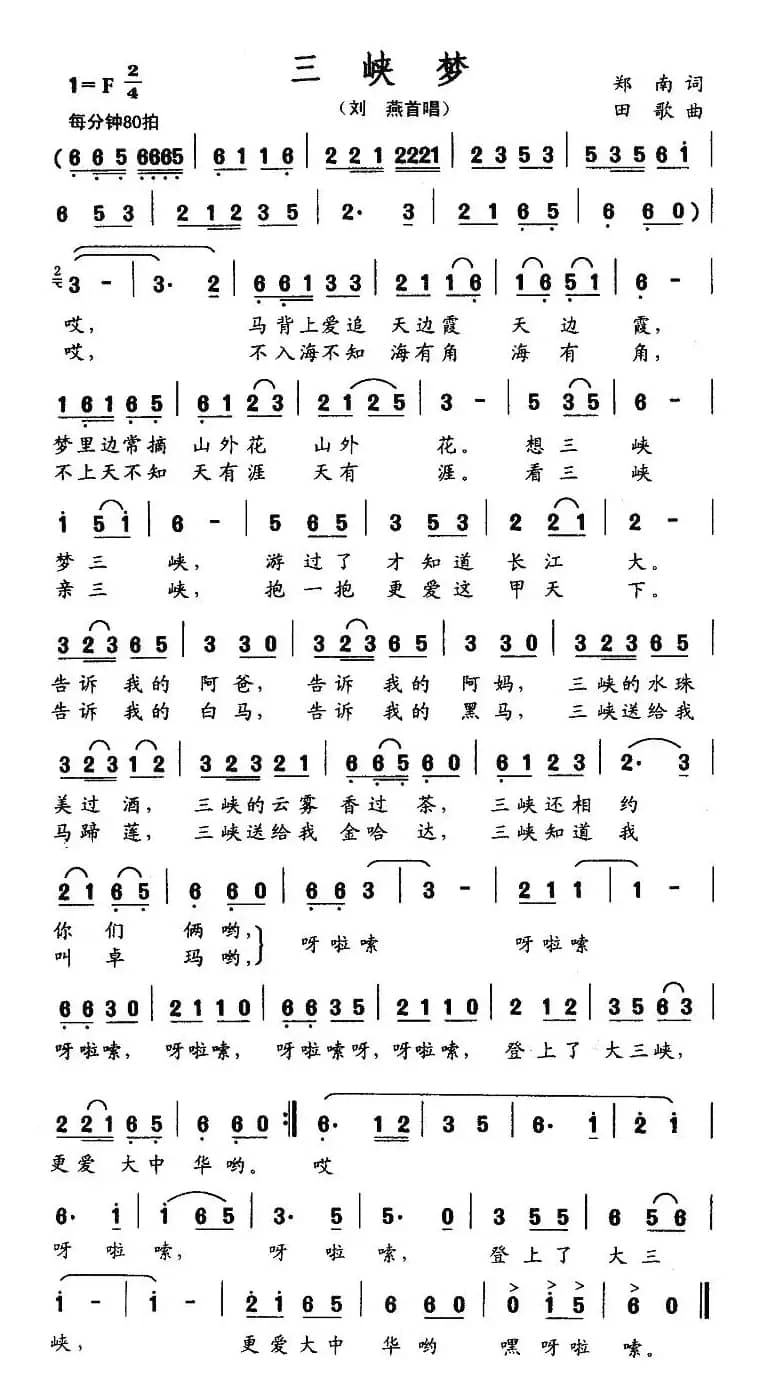 三峡梦
1=F 2/4
郑南词
(刘 燕首唱)
田歌曲
每分钟80拍
(6 6 5 6 6 6 5 | 6 1 1 6 | 2 2 1 2 2 2 1 | 2 3 5 3 | 5 3 5 6 i |
6 5 3 | 2 1 2 3 5 | 2· 3 | 2 1 6 5 | 6 6 0) |
3 - | 3· 2 | 6 6 1 3 3 | 2 1 1 6 | 1 6 5 1 | 6 - |
哎, 马背上爱追 天边霞 天 边 霞,
哎, 不入海不知 海有角 海 有 角,
1 6 1 6 5 | 6 1 2 3 | 2 1 2 5 | 3 - | 5 3 5 | 6 - |
梦里边常摘 山外花 山外 花。 想三 峡
不上天不知 天有涯 天有 涯。 看三 峡
i 5 i | 6 - | 5 6 5 | 3 5 3 | 2 2 1 | 2 - |
梦三 峡, 游过了 才知道 长江 大。
亲三 峡, 抱一抱 更爱这 甲天 下。
3 2 3 6 5 | 3 3 0 | 3 2 3 6 5 | 3 3 0 | 3 2 3 6 5 |
告诉 我的 阿爸, 告诉 我的 阿妈, 三峡的水珠
告诉 我的 白马, 告诉 我的 黑马, 三峡送给我
3 2 3 1 2 | 3 2 3 2 1 | 6 6 5 6 0 | 6 1 2 3 | 2· 3 |
美过酒, 三峡的云雾 香过 茶, 三峡还相约
马蹄莲, 三峡送给我 金哈 达, 三峡知道我
2 1 6 5 | 6 6 0 | 6 6 3 | 3 - | 2 1 1 | 1 - |
你 们 俩哟, 呀啦嗦 呀啦嗦
叫 卓 玛哟,
6 6 3 0 | 2 1 1 0 | 6 6 3 5 | 2 1 1 0 | 2 1 2 | 3 5 6 3 |
呀啦嗦, 呀啦嗦, 呀啦嗦呀, 呀啦嗦, 登上了 大三峡,
2 2 1 6 5 | 6 6 0 :| 6· 1 2 | 3 5 | 6· i | 2 i |
更爱大中 华哟。 哎
6· i | i 6 5 | 3· 5 | 5· 0 | 3 5 5 | 6 5 6 |
呀 啦 嗦, 呀 啦 嗦, 登上了 大三
i - | i - | 2 i 6 5 | 6 6 0 | 0 i 5 | 6 0 ||
峡, 更爱大中 华哟 嘿呀啦 嗦。